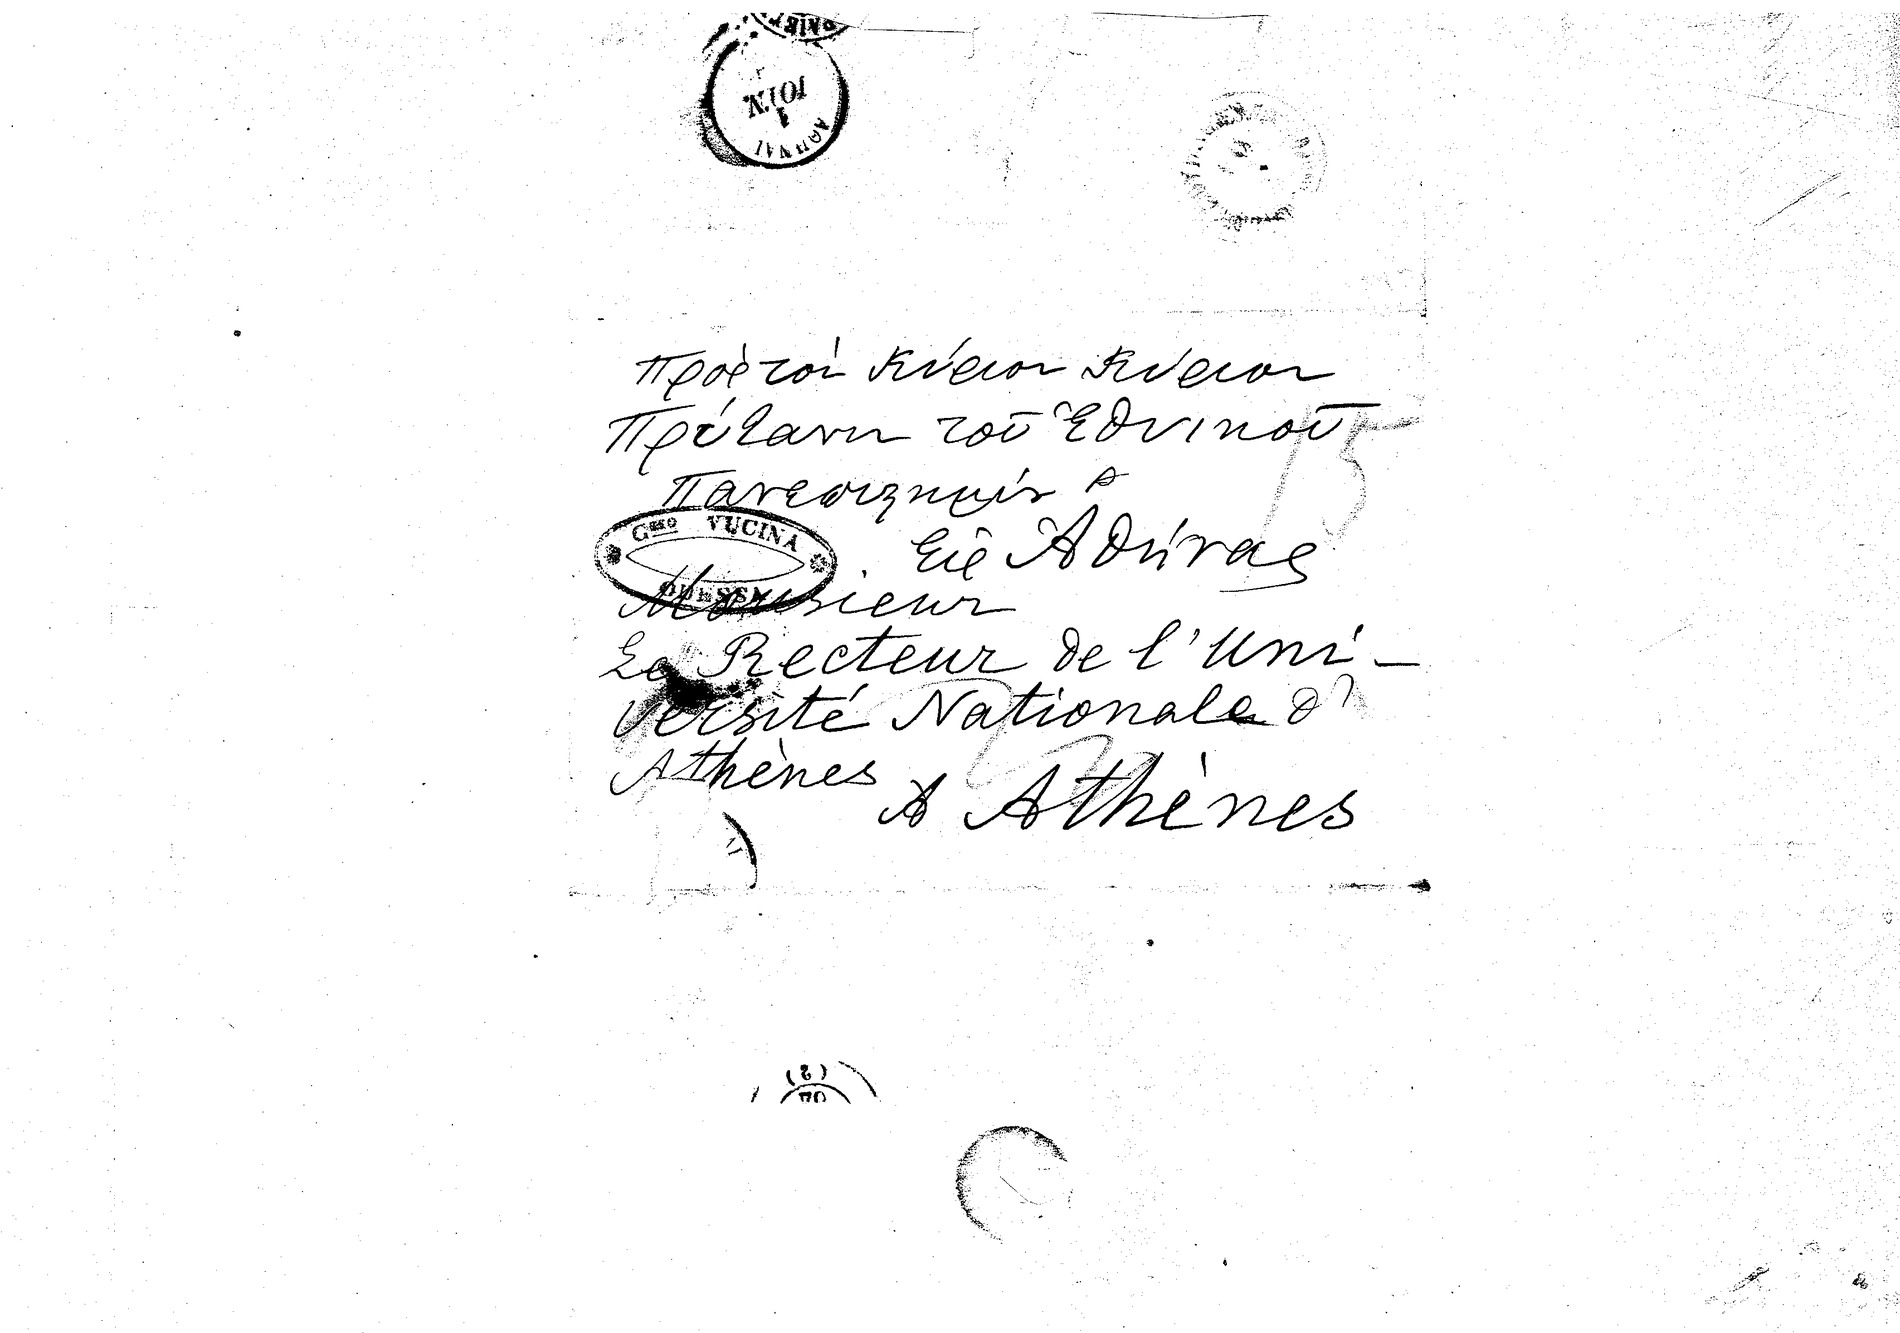 ΙΟΥΝ
1
ΑΘΗΝΑΙ
Πρὸς τὸν Κύριον Κύριον
Πρύτανιν τοῦ Ἐθνικοῦ
Πανεπιστημίου
Gmo VUCINA
ODESSA
Εἰς Ἀθήνας
Monsieur
Le Recteur de l'Uni-
versité Nationale d'
Athènes
A Athènes
(2)